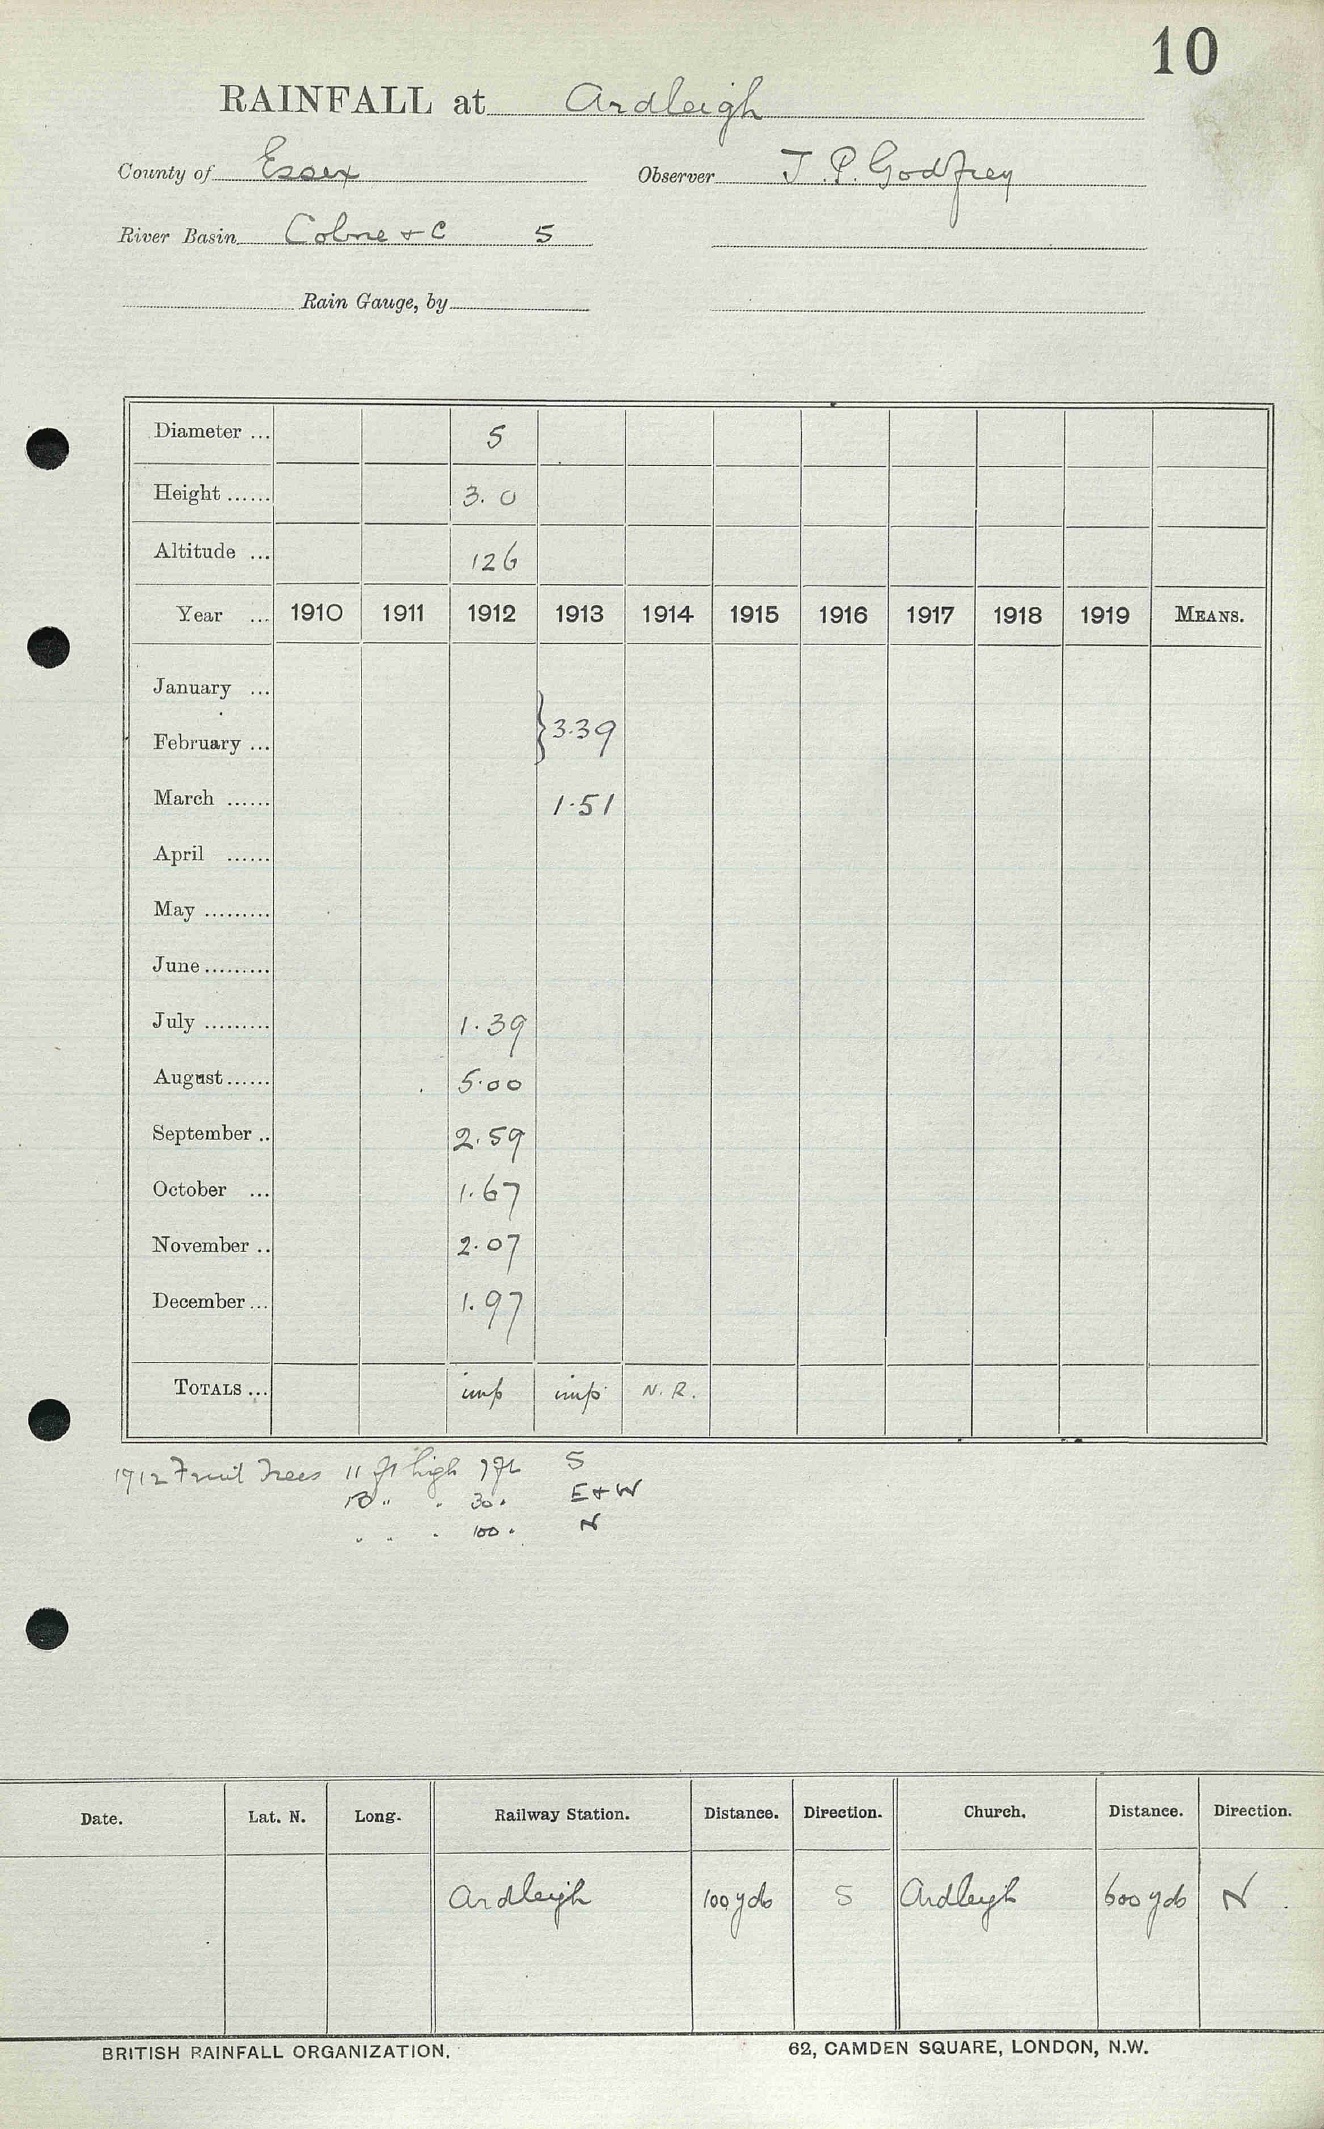 10
RAINFALL at Ardleigh
County of Essex Observer J. P. Godfrey
River Basin Colne & C 5
Rain Gauge, by
Diameter ... 5
Height ...... 3.0
Altitude ... 126
Year ... 1910 1911 1912 1913 1914 1915 1916 1917 1918 1919 MEANS.
January ...
} 3.39
February ...
March ...... 1.51
April ......
May .........
June .........
July ......... 1.39
August ...... 5.00
September .. 2.59
October ... 1.67
November .. 2.07
December ... 1.97
TOTALS ... imp imp N. R.
1912 Fruit Trees 11 ft high 9 ft S
13 " " 30 " E & W
" " " 100 " N
Date. Lat. N. Long. Railway Station. Distance. Direction. Church. Distance. Direction.
Ardleigh 100 yds S Ardleigh 600 yds N
BRITISH RAINFALL ORGANIZATION. 62, CAMDEN SQUARE, LONDON, N.W.